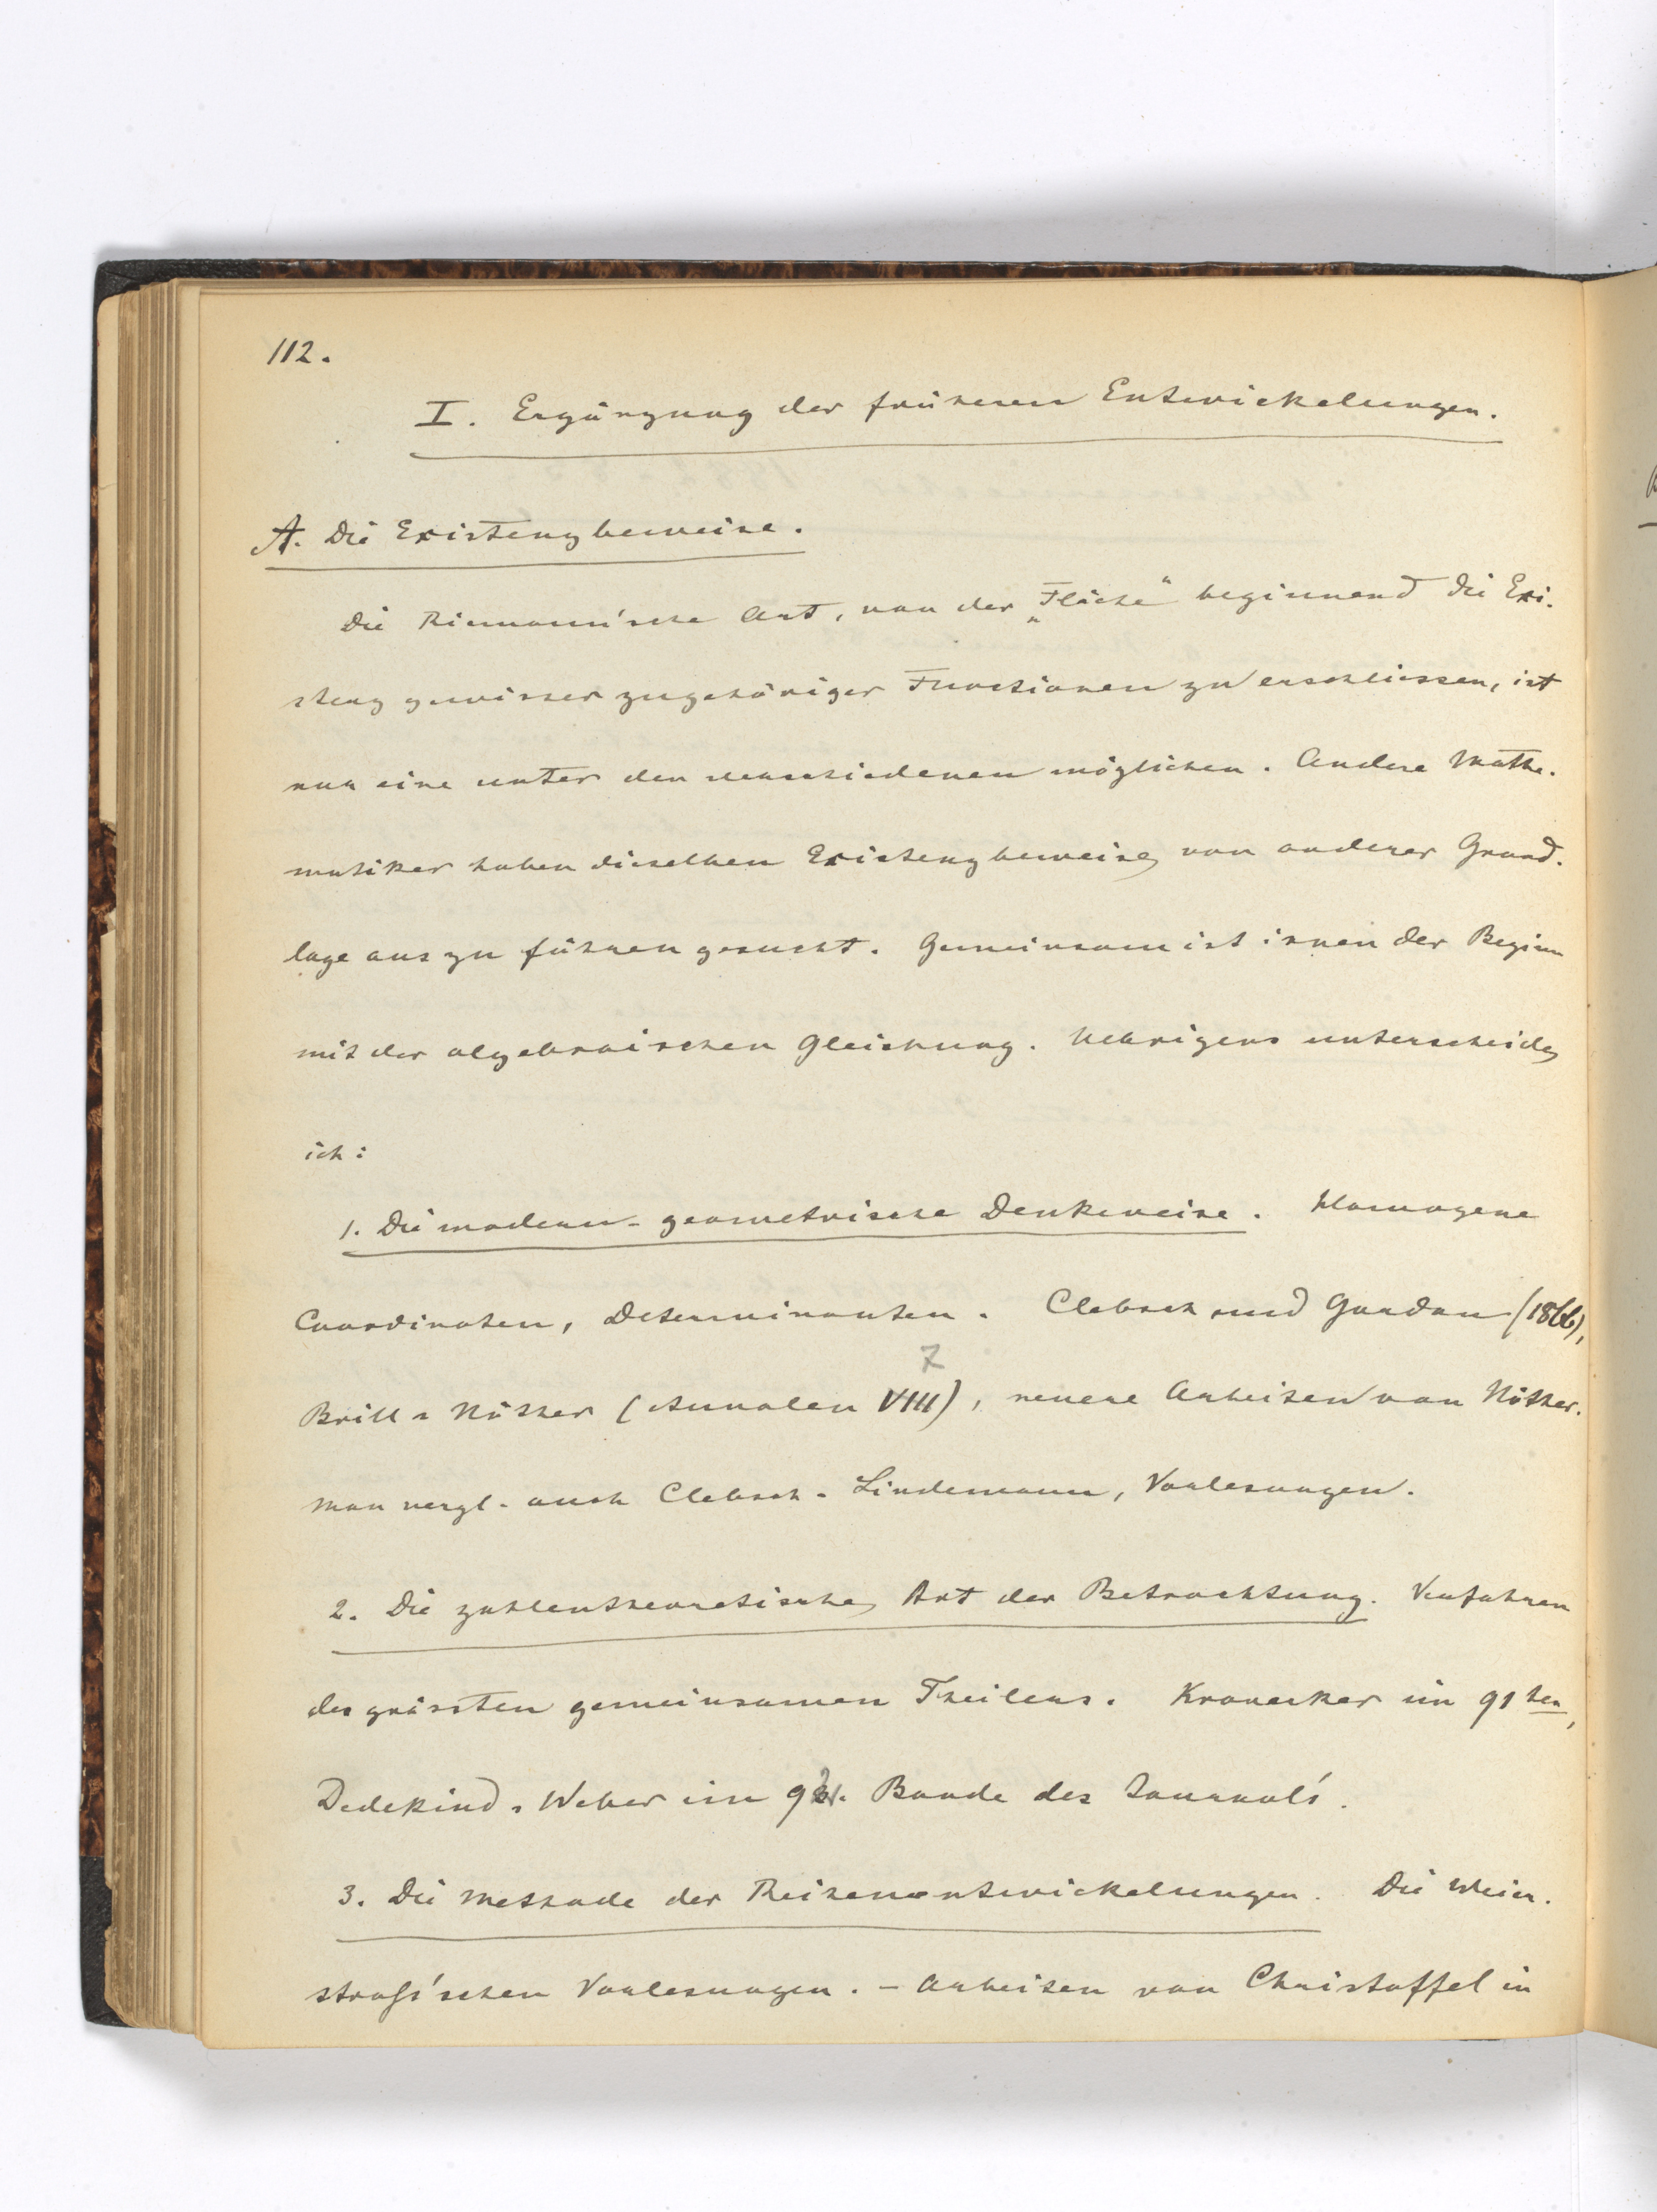 112.
I. Ergänzung der früheren Entwickelungen.
A. Die Existenzbeweise.
Die Riemann'sche Art, von der „Fläche“ beginnend die Exi-
stenz gewisser zugehöriger Functionen zu erschliessen, ist
nur eine unter den verschiedenen möglichen. Andere Mathe-
matiker haben dieselben Existenzbeweise von anderer Grund-
lage aus zu führen gesucht. Gemeinsam ist ihnen der Beginn
mit der algebraischen Gleichung. Uebrigens unterscheide
ich:
1. Die modern-geometrische Denkweise. Homogene
Coordinaten, Determinanten. Clebsch und Gordan (1866),
7
Brill-Nöther (Annalen VIII), neuere Arbeiten von Nöther.
Man vergl. auch Clebsch-Lindemann, Vorlesungen.
2. Die zahlentheoretische Art der Betrachtung. Verfahren
des grössten gemeinsamen Theilers. Kronecker im 91ten,
Dedekind-Weber im Bande des Journal's.
3. Die Methode der Reihenentwickelungen. Die Weier-
straß'schen Vorlesungen. – Arbeiten von Christoffel in